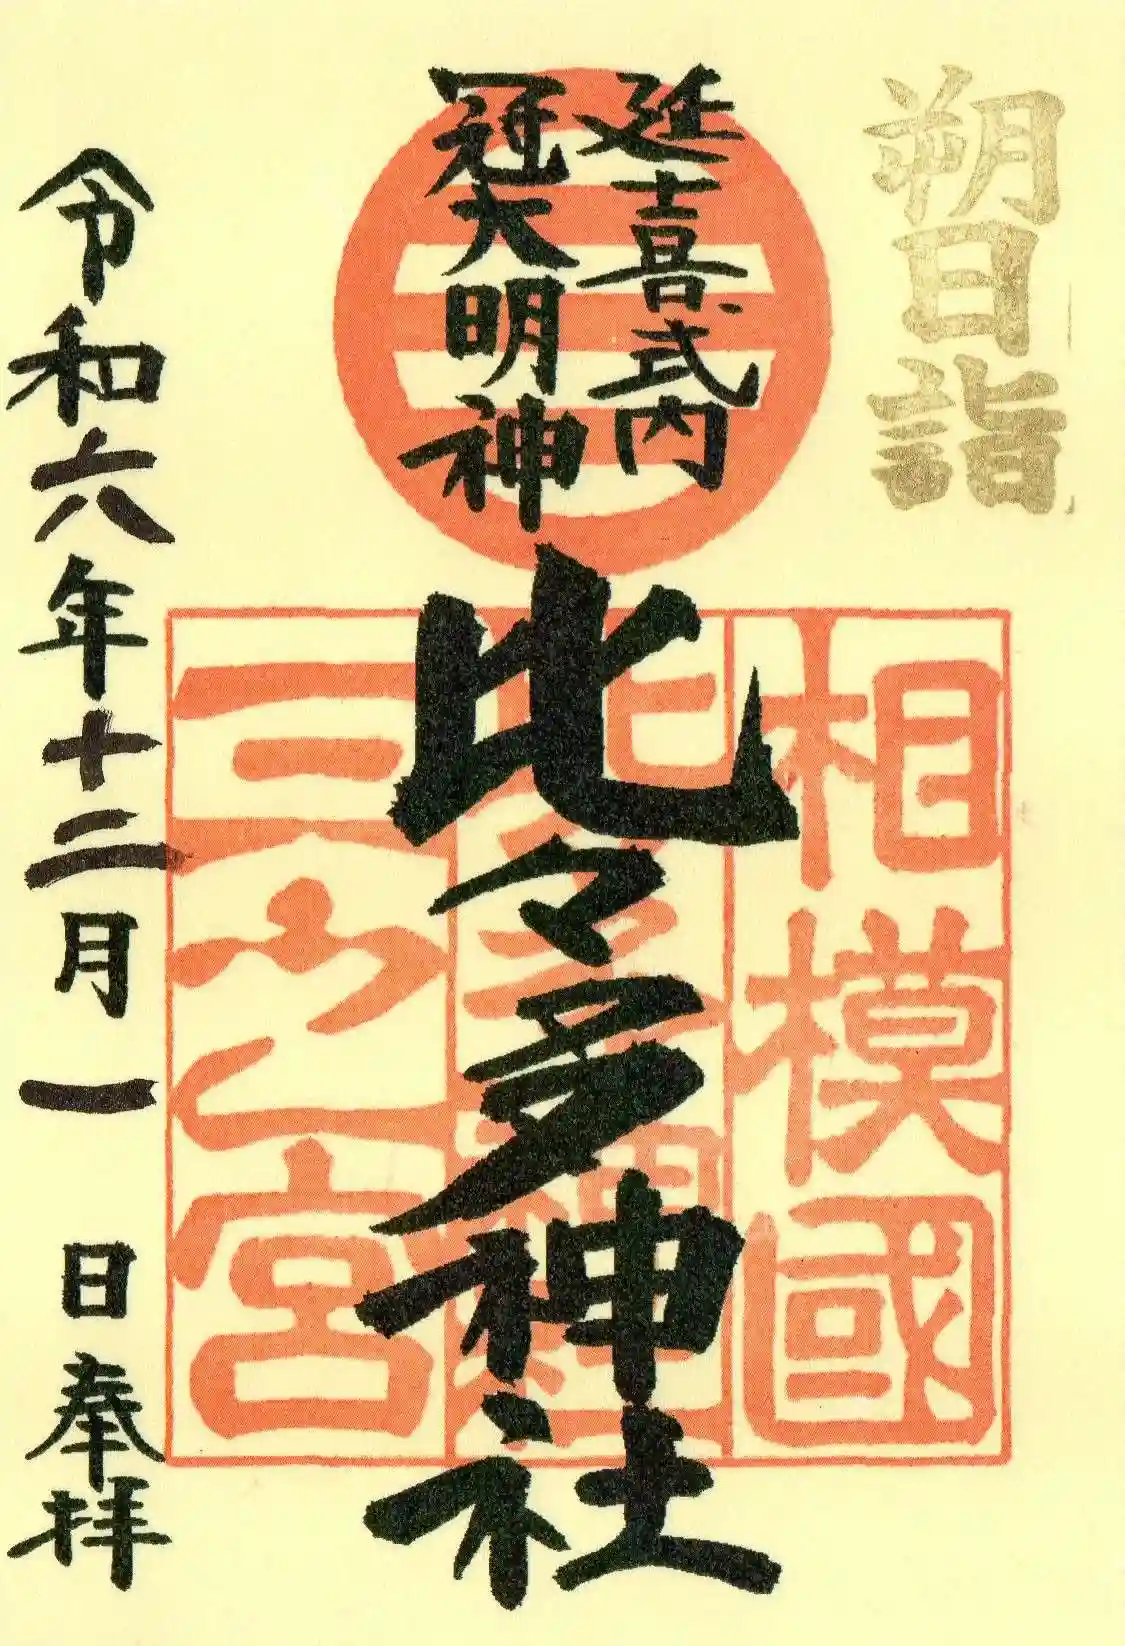 朔日詣
延喜式内
冠大明神
比々多神社
相模國
三之宮
令和六年十二月一日奉拝